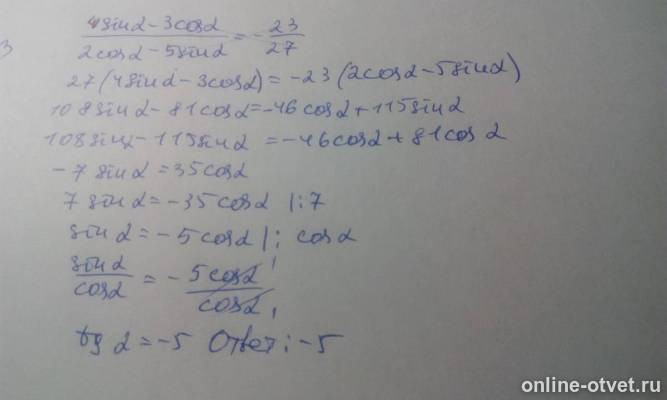 3
(4sinα - 3cosα)/(2cosα - 5sinα) = -23/27
27(4sinα - 3cosα) = -23(2cosα - 5sinα)
108sinα - 81cosα = -46cosα + 115sinα
108sinα - 115sinα = -46cosα + 81cosα
-7sinα = 35cosα
7sinα = -35cosα |:7
sinα = -5cosα |: cosα
sinα/cosα = -5cosα/cosα
tgα = -5 Ответ: -5
online-otvet.ru